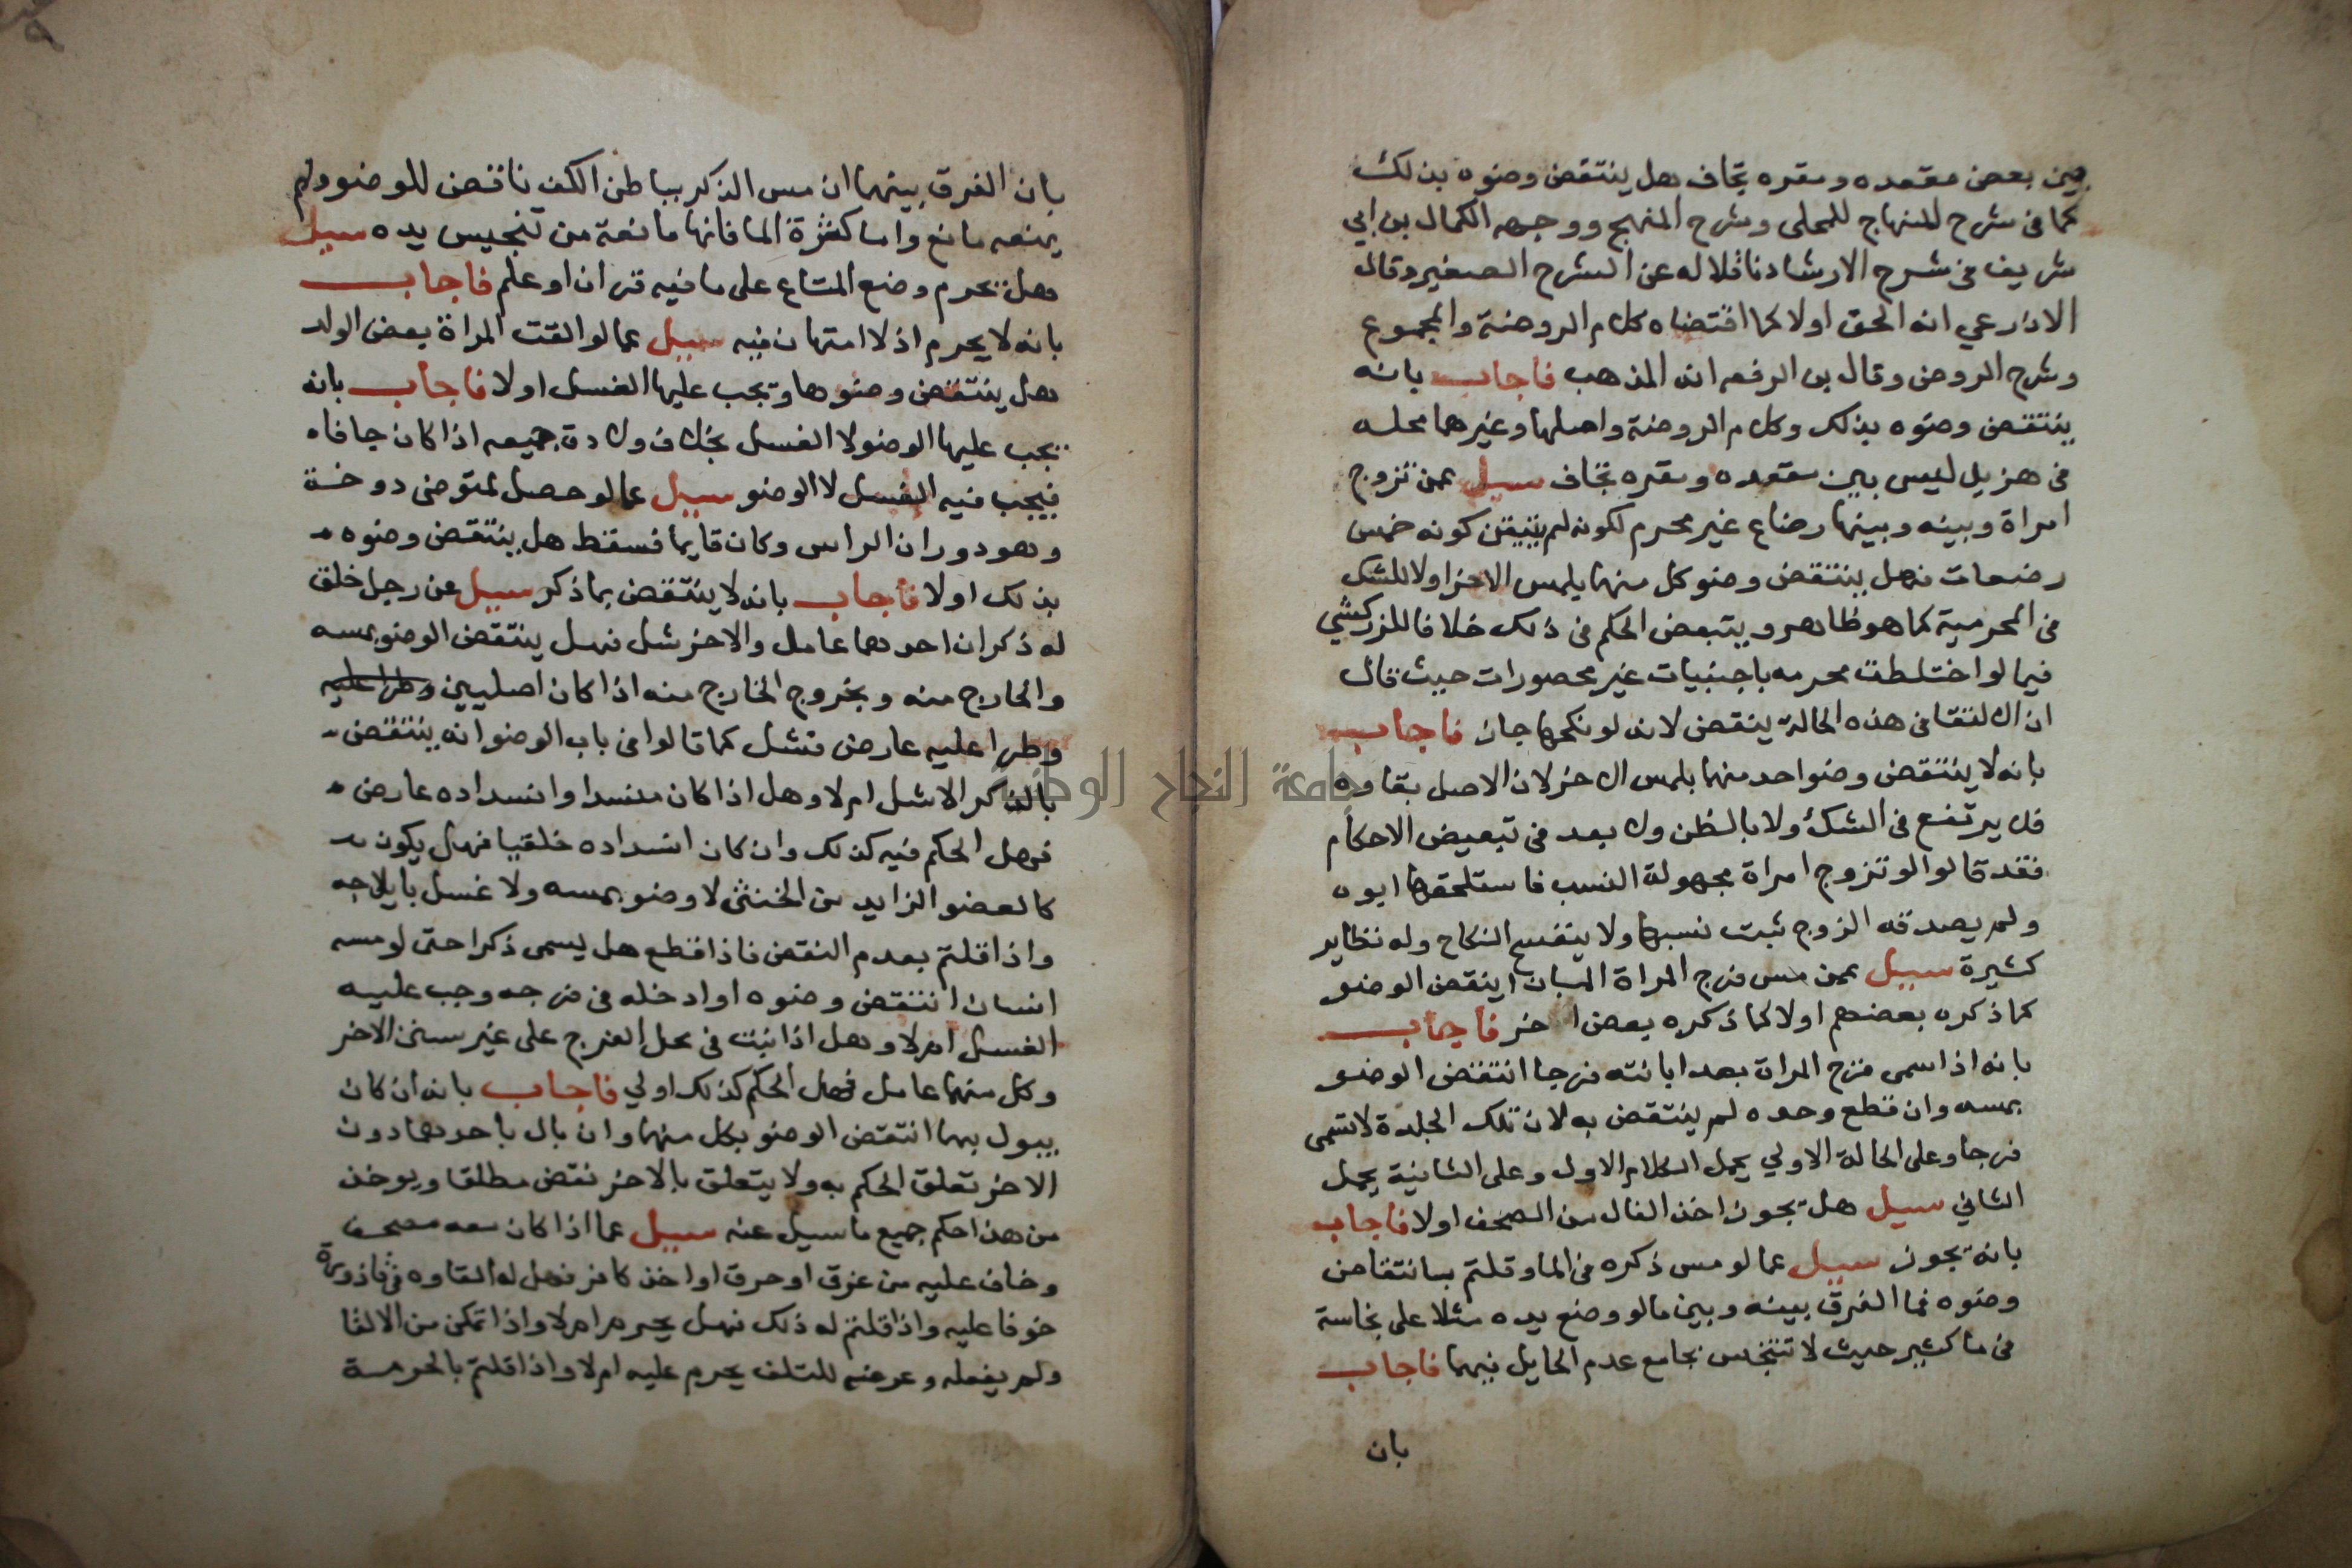 بين بعض مقعده ومقره تجاف هل ينتقض وضوه بذلك
كما فى شرح المنهاج للمحلى وشرح المنهج ووجهه الكمال بن ابي
شريف فى شرح الارشاد ناقلا له عن الشرح الصغير وقال
الاذرعي انه الحق اولا كما اقتضاه كلام الروضة والمجموع
وشرح الروض وقال بن الرفعه انه المذهب فاجاب بانه
ينتقض وضوه بذلك وكلام الروضة واصلها وغيرهما محله
فى هزيل ليس بين مقعده ومقره تجاف سيل عمن تزوج
امراة وبينه وبينها رضاع غير محرم لكونه لم يتيقن كونه خمس
رضعات فهل ينتقض وضو كل منهما بلمس الاخر اولا للشك
فى المحرمية كما هو ظاهر ويتبعض الحكم فى ذلك خلافا للزركشي
فيما لو اختلطت محرمه باجنبيات غير محصورات حيث قال
ان الالتقا فى هذه الحالة ينقض لانه لو نكحها جاز فاجاب
بانه لا ينتقض وضو احد منهما بلمس الاخر لان الاصل بقاوه
فلا يرتفع فى الشك ولا بالظن ولا بعد فى تبعيض الاحكام
فقد قالوا لو تزوج امراة مجهولة النسب فاستلحقها ابوه
ولم يصدقه الزوج ثبت نسبها ولا ينفسخ النكاح وله نظاير
كثيرة سيل عمن مس فرج المراة المبان اينقض الوضو
كما ذكره بعضهم اولا كما ذكره بعض اخر فاجاب
بانه اذا سمى فرج المراة بعد ابانته فرجا انتقض الوضو
بمسه وان قطع وحده لم ينتقض به لان تلك الجلدة لا تسمى
فرجا وعلى الحالة الاولي يحمل الكلام الاول وعلى الثانية يحمل
الثاني سيل هل يجوز اخذ الفال من المصحف اولا فاجاب
بانه يجوز سيل عما لو مس ذكره فى الما وقلتم بانتقاض
وضوه فما الفرق بينه وبين ما لو وضع يده مثلا على نجاسة
فى ما كثير حيث لا تتنجس بجامع عدم الحايل فيهما فاجاب
بان
بان الفرق بينهما ان مس الذكر بباطن الكف ناقض للوضو ولم
يمنعه مانع واما كثرة الما فانها مانعة من تنجيس يده سيل
هل يحرم وضع المتاع على ما فيه قران او علم فاجاب
بانه لا يحرم اذ لا امتهان فيه سيل عما لو القت المراة بعض الولد
هل ينتقض وضوها وتجب عليها الغسل اولا فاجاب بانه
تجب عليها الوضو لا الغسل بخلاف ولادة جميعه اذا كان جافا
فيجب فيه الغسل لا الوضو سيل عما لو حصل لمتوضى دوخة
وهو دوران الراس وكان قايما فسقط هل ينتقض وضوه
بذلك اولا فاجاب بانه لا ينتقض بما ذكر سيل عن رجل خلق
له ذكران احدهما عامل والاخر شل فهل ينتقض الوضو بمسه
والخارج منه وبخروج الخارج منه اذا كان اصليين وطرا عليه
وطرا عليه عارض فشل كما قالوا فى باب الوضو انه ينتقض
بالذكر الاشل ام لا وهل اذا كان منسدا وانسداده عارض
فهل الحكم فيه كذلك وان كان انسداده خلقيا فهل يكون
كالعضو الزايد من الخنثى لا وضو بمسه ولا غسل بايلاجه
واذا قلتم بعدم النقض فاذا قطع هل يسمى ذكرا حتى لو مسه
انسان انتقض وضوه او ادخله فى فرجه وجب عليه
الغسل ام لا وهل اذا نبت فى محل الفرج على غير سنن الاخر
وكل منهما عامل فهل الحكم كذلك اولي فاجاب بانه ان كان
يبول بهما انتقض الوضو بكل منهما وان بال باحدهما دون
الاخر تعلق الحكم به ولا يتعلق بالاخر نقض مطلقا ويوخذ
من هذا حكم جميع ما سيل عنه سيل عما اذا كان معه مصحف
وخاف عليه من غرق او حرق او اخذ كافر فهل له القاوه فى قاذورة
خوفا عليه واذا قلتم له ذلك فهل يحرم ام لا واذا تمكن من الالقا
ولم يفعله وعرضه للتلف يحرم عليه ام لا واذا قلتم بالحرمة
جامعة النجاح الوطنية